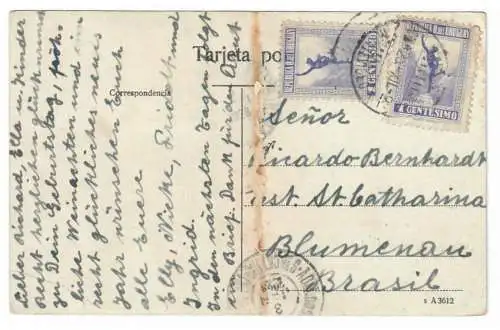 Tarjeta po
Correspondencia
Lieber Richard, Ella u. Kinder
Recht herzlichen Glückwunsch
zu Dein Geburtstag, fröh-
liche Weinachten und ein
recht glückliches neues
Jahr wünschen Euch
alle Euere
Elly, Wicke, Friedl
Ingrid.
In den nächsten Tagen folgt
ein Brief. Dank für den
Señor
Ricardo Bernhardt
Est. St. Catharina
Blumenau
Brasil
REPUBLICA O. DEL URUGUAY
1 CENTESIMO
REPUBLICA O. DEL URUGUAY
1 CENTESIMO
s A3612